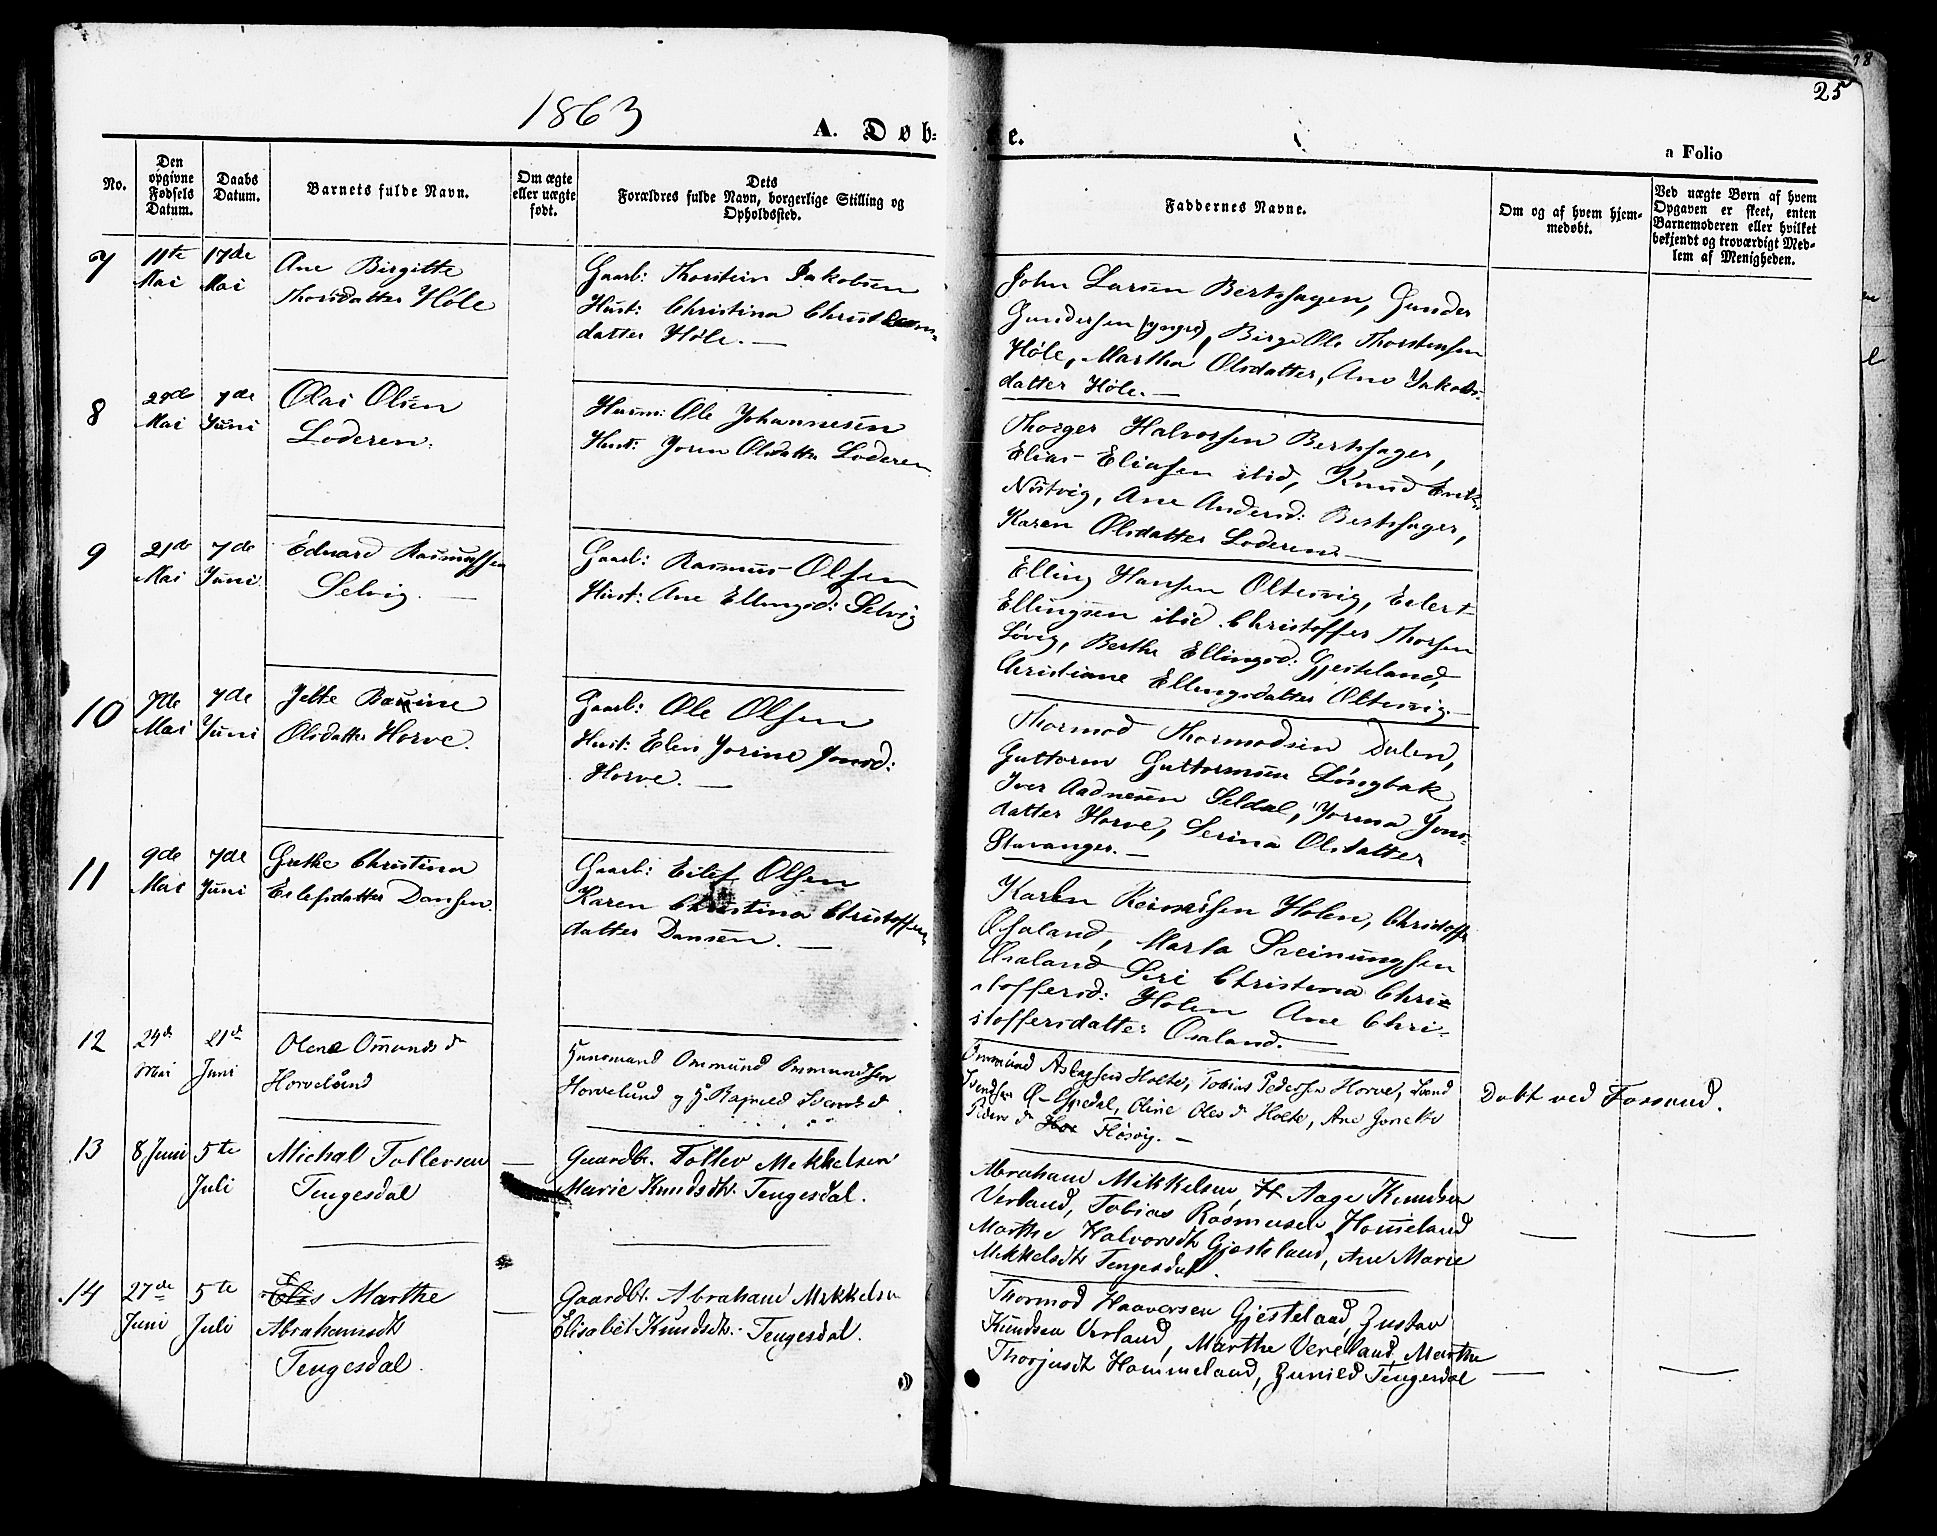 1863
A. Døb=
e.
25
a Folio
No.
Den opgivne Fødsels Datum.
Daabs Datum.
Barnets fulde Navn.
Om ægte eller uægte født.
Dets Forældres fulde Navn, borgerlige Stilling og Opholdssted.
Faddernes Navne.
Om og af hvem hjemmedøbt.
Ved uægte Børn af hvem Opgaven er skeet, enten Barnemoderen eller hvilket bekjendt og troværdigt Medlem af Menigheden.
7
11te Mai
17de Mai
Ane Birgitte
Thorsdatter Høle
Gaarb: Thorstein Jakobsen
Hust: Christina
datter Høle. —
John Larsen Bertshagen, Gunder
Gundersen (yngre), Birge Ole Thorstensen
Høle, Martha Olsdatter, Ane Jakobs-
datter Høle. —
8
Mai
7de Juni
Olai Olsen
Loderen.
Husm: Ole Johannesen
Hust: Joren Olsdatter Loderen
Thorger Halvorsen Bertshager,
Elias Eliasen ibid, Knud
Nistvig, Ane Andersd: Bertshager,
Karen Olsdatter Loderen —
9
21de Mai
7de Juni
Edvard Rasmussen
Selvig. —
Gaarb: Rasmus Olsen
Hust: Ane Ellingsd: Selvig
Elling Hansen Oltesvig, Eilert
Ellingsen ibid. Christoffer Thorsen
Løvig, Berthe Ellingsd: Gjesteland,
Christiane Ellingsdatter Oltesvig
10
7de Mai
7de Juni
Jette
Olsdatter Horve.
Gaarb: Ole Olsen
Hust: Elen Jorine Jonsd:
Horve. —
Thormod Thormodsen Dalen,
Guttorm Guttormsen Longbak
Iver Aadnesen Seldal, Jorina Jons-
datter Horve, Serina Olsdatter
Stavanger. —
11
9de Mai
7de Juni
Grethe Christina
Eilefsdatter Dansen.
Gaarb: Eilef Olsen
Karen Christina Christoffers
datter Dansen. —
Karen Holen, Christoffer
Osaland, Marta Sveinungsen
Osaland Siri Christina Chri-
stoffersd: Holen Ane Chri-
stoffersdatter Osaland. —
12
24de Mai
21de Juni
Olene Omundsd
Horvelund
Huusmand Ommund Ommundsen
Horvelund og H. Ragnild Svendsd.
Ommund Aslagsen Holte, Tobias Pedersen Horve, Svend
Svendsen Ø-Espedal, Oline Olesd Holte, Ane
Peders d Høsvig. —
Døbt ved Fossand.
13
8 Juni
5te Juli
Michal Tollevsen
Tengesdal
—
Gaardbr. Tollev Mikkelsen
Marie Knudsdtr. Tengesdal.
Abraham Mikkelsen, Aage Knudsen
Verland, Tobias Rasmusen Hommeland
Marthe Halvorsdtr Gjesteland, Ane Marie
Mikkelsdtr Tengesdal.
— —
14
27de Juni
5te Juli
Marthe
Abrahamsdtr
Tengesdal.
—
Gaardbr. Abraham Mikkelsen
Elisabet Knudsdtr. Tengesdal.
Thormod Haaversen Gjesteland, Gustav
Knudsen Verland, Marthe Vereland, Marthe
Thorjusdtr Hommeland, Gunild Tengesdal
— —